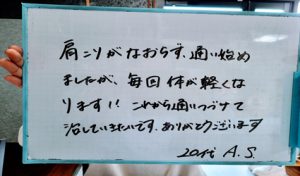 肩こりがなおらず、通い始め
ましたが、毎回体が軽くな
ります!! これから通いつづけて
治していきたいです。ありがとうございます
20代 A.S.